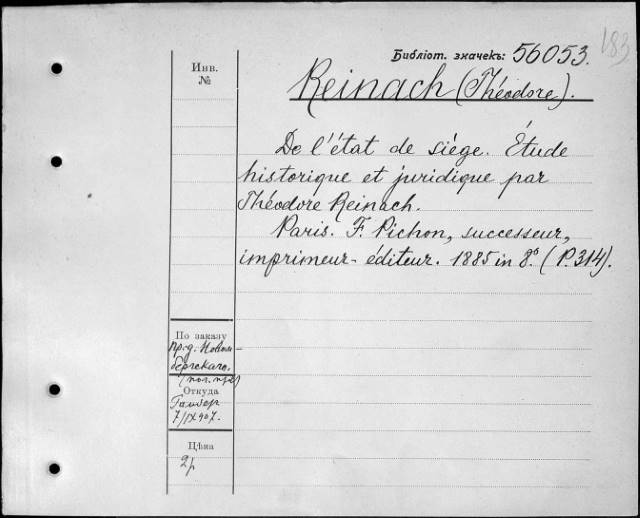 183
Библіот. значекъ: 56053.
Инв.
№
Reinach (Théodore).
De l'état de siège. Étude
historique et juridique par
Théodore Reinach.
Paris. F. Pichon, successeur,
imprimeur-éditeur. 1885 in 8º. (P. 314).
По заказу
пр.-д. Новом-
бергскаго.
Откуда
7/IX 907.
Цѣна
2р